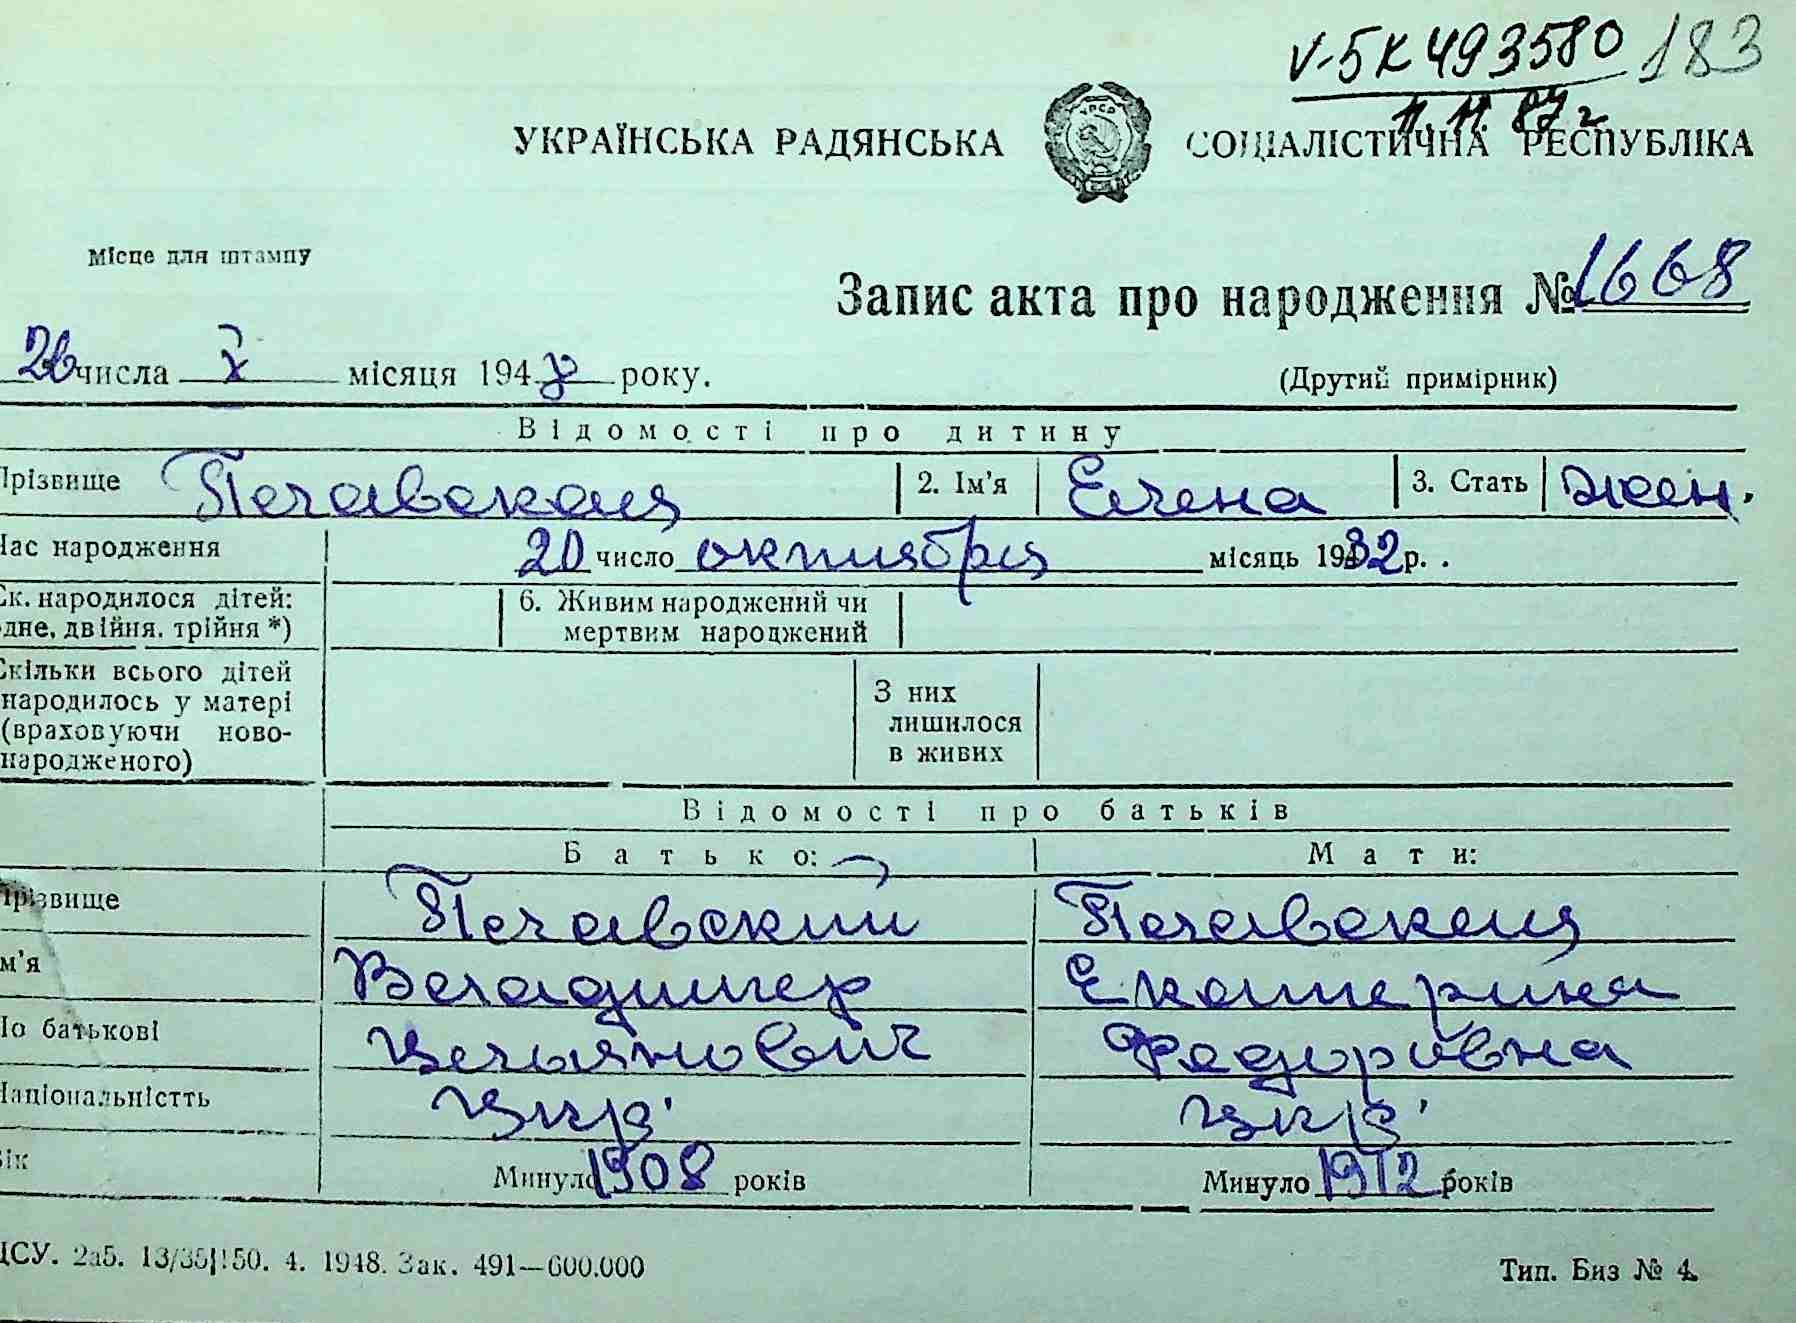 V-БК 493580 183
11.11.87 г
УКРАЇНСЬКА РАДЯНСЬКА СОЦІАЛІСТИЧНА РЕСПУБЛІКА
Місце для штампу
Запис акта про народження № 1668
числа X місяця 194 року.
(Другий примірник)
Відомості про дитину
Прізвище Печавская 2. Ім'я Елена 3. Стать жен.
Час народження 20 число октября місяць 1932 р.
Ск. народилося дітей: одне, двійня, трійня *)
6. Живим народжений чи мертвим народжений
Скільки всього дітей народилось у матері (враховуючи ново-народженого)
З них лишилося в живих
Відомості про батьків
Батько: Мати:
Прізвище Печавский Печавская
Ім'я Владимир Екатерина
По батькові Ульянович Федоровна
Національністть укр. укр.
Вік Минуло 1908 років Минуло 1912 років
ЦСУ. 2а5. 13/35 150. 4. 1948. Зак. 491—600.000
Тип. Биз № 4.